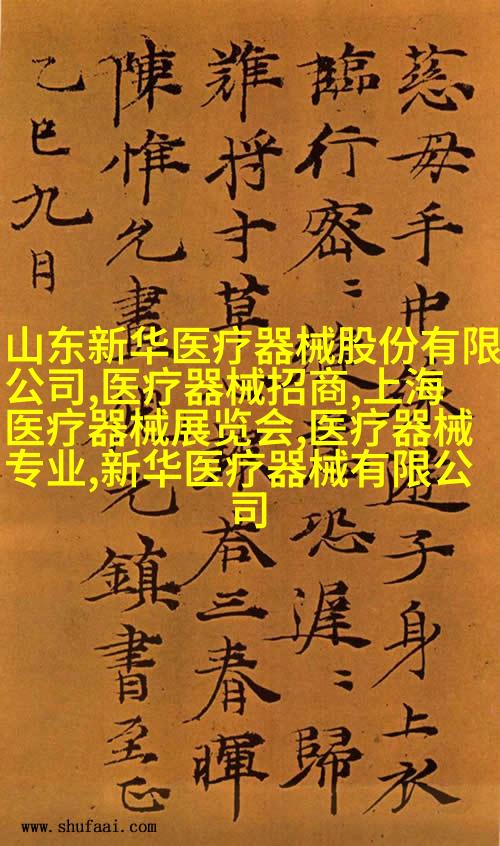 慈母手中遊子身上衣
臨行密〻恐遲〻歸
難将寸草荅三春暉
陳惟允書鎮書至正
乙巳九月
山东新华医疗器械股份有限
公司,医疗器械招商,上海
医疗器械展览会,医疗器械
专业,新华医疗器械有限公
司
www.shufaai.com